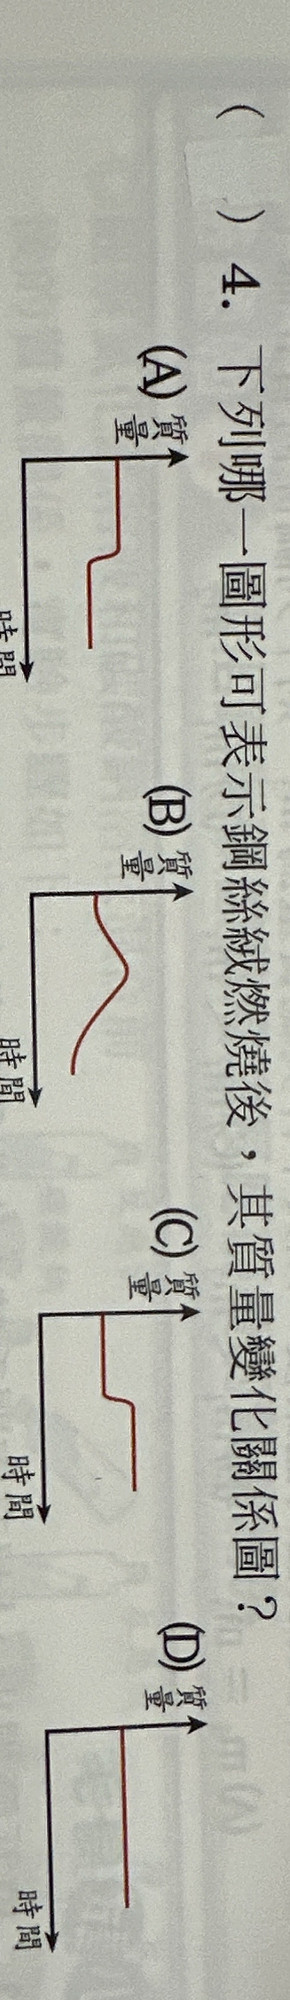 (　) 4. 下列哪一圖形可表示鋼絲絨燃燒後，其質量變化關係圖？
(A) 質量 時間
(B) 質量 時間
(C) 質量 時間
(D) 質量 時間